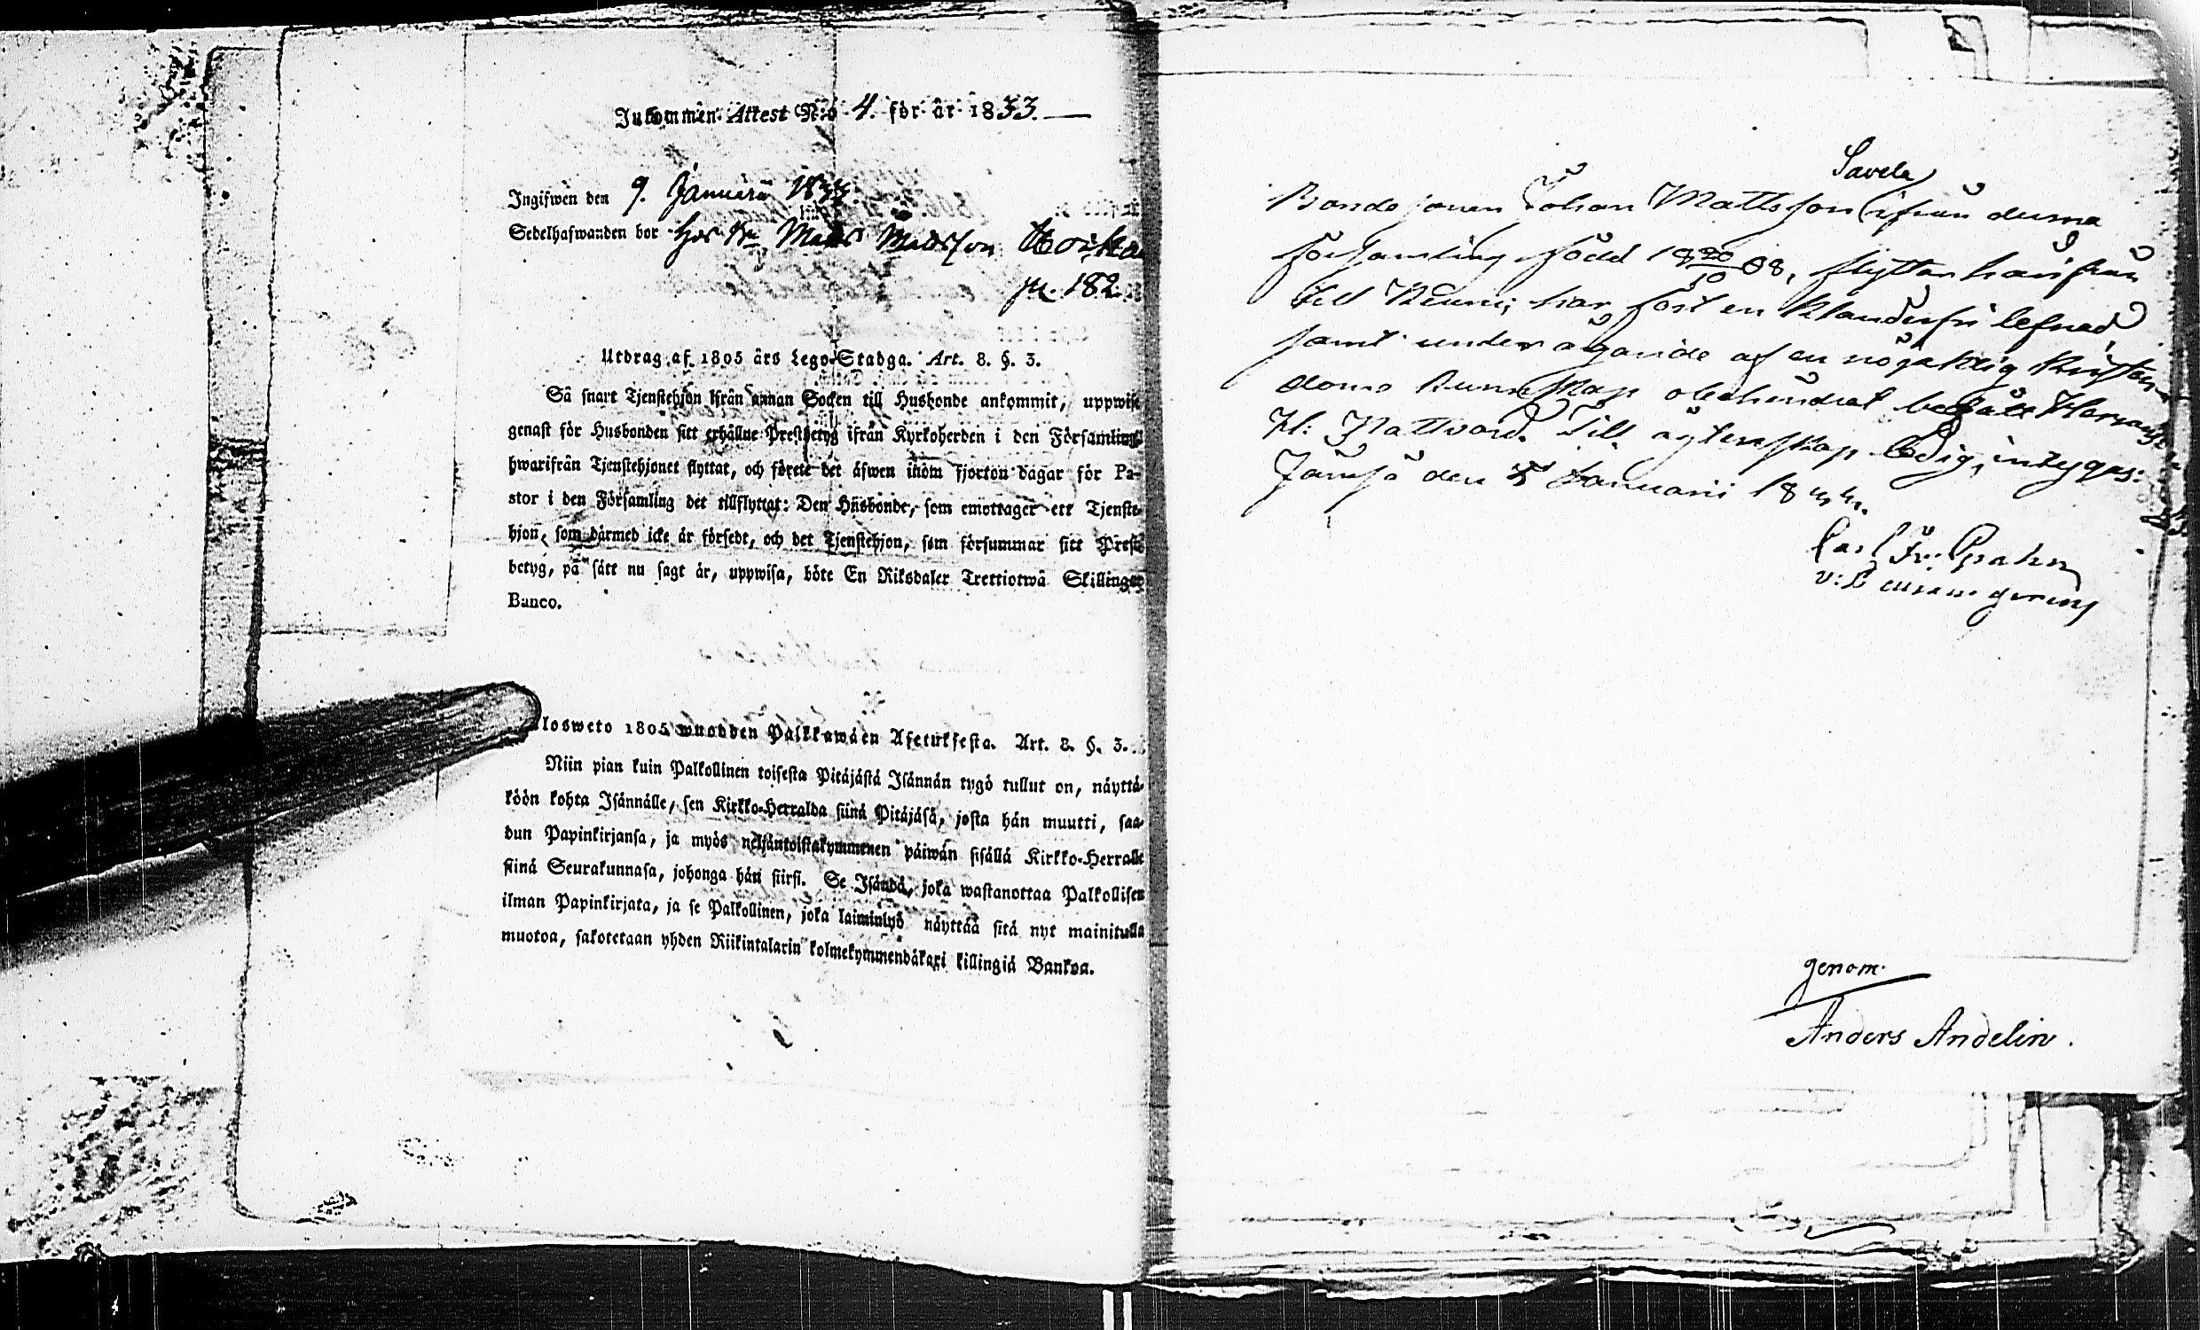 Inkommen Attest N:o 4. för år 1833.
Ingifwen den 9. Januarii 1833.
Sedelhafwanden bor hos Bn Matts Mattsson
p. 182
Utdrag af 1805 års Lego-Stadga. Art. 8. §. 3.
Så snart Tjenstehjon ifrån annan Socken till Husbonde ankommit, uppwise
genast för Husbonden sitt erhållne Prestbetyg ifrån Kyrkoherden i den Församling
hwarifrån Tjenstehjonet flyttat, och förete det äfwen inom fjorton dagar för Pa-
stor i den Församling det tillflyttat: Den Husbonde, som emottager ett Tjenste-
hjon, som därmed icke är försedt, och det Tjenstehjon, som försummar sitt Prest-
betyg, på sätt nu sagt är, uppwisa, böte En Riksdaler Trettiotwå Skillingar
Banco.
losweto 1805 wuodden Palkkawäen Asetuksesta. Art. 8. §. 3.
Niin pian kuin Palkollinen toisesta Pitäjästä Isännän tygö tullut on, näyttä-
köön kohta Isännälle, sen Kirkko-Herralda siinä Pitäjäsä, josta hän muutti, saa-
dun Papinkirjansa, ja myös neljäntoistakymmenen päiwän sisällä Kirkko-Herralle
siinä Seurakunnasa, johonga hän siirsi. Se Isändä, joka wastanottaa Palkollisen
ilman Papinkirjata, ja se Palkollinen, joka laiminlyö näyttää sitä nyt mainitulla
muotoa, sakotetaan yhden Riikintalarin kolmekymmendäkaxi killingiä Bankoa.
Savela
Bondesonen Johan Mattsson ifrån denna
församling född 18 20/10 08, flyttar härifrån
till Keuru; har fört en klanderfri lefnad
samt under ägande af en nöjaktig kristen-
doms kunskap obehindrat begått
H: Nattvard. Till ägtenskap ledig, intygas:
Jämsä den Januarii 1833.
Carl Fr:
genom
Anders Andelin.